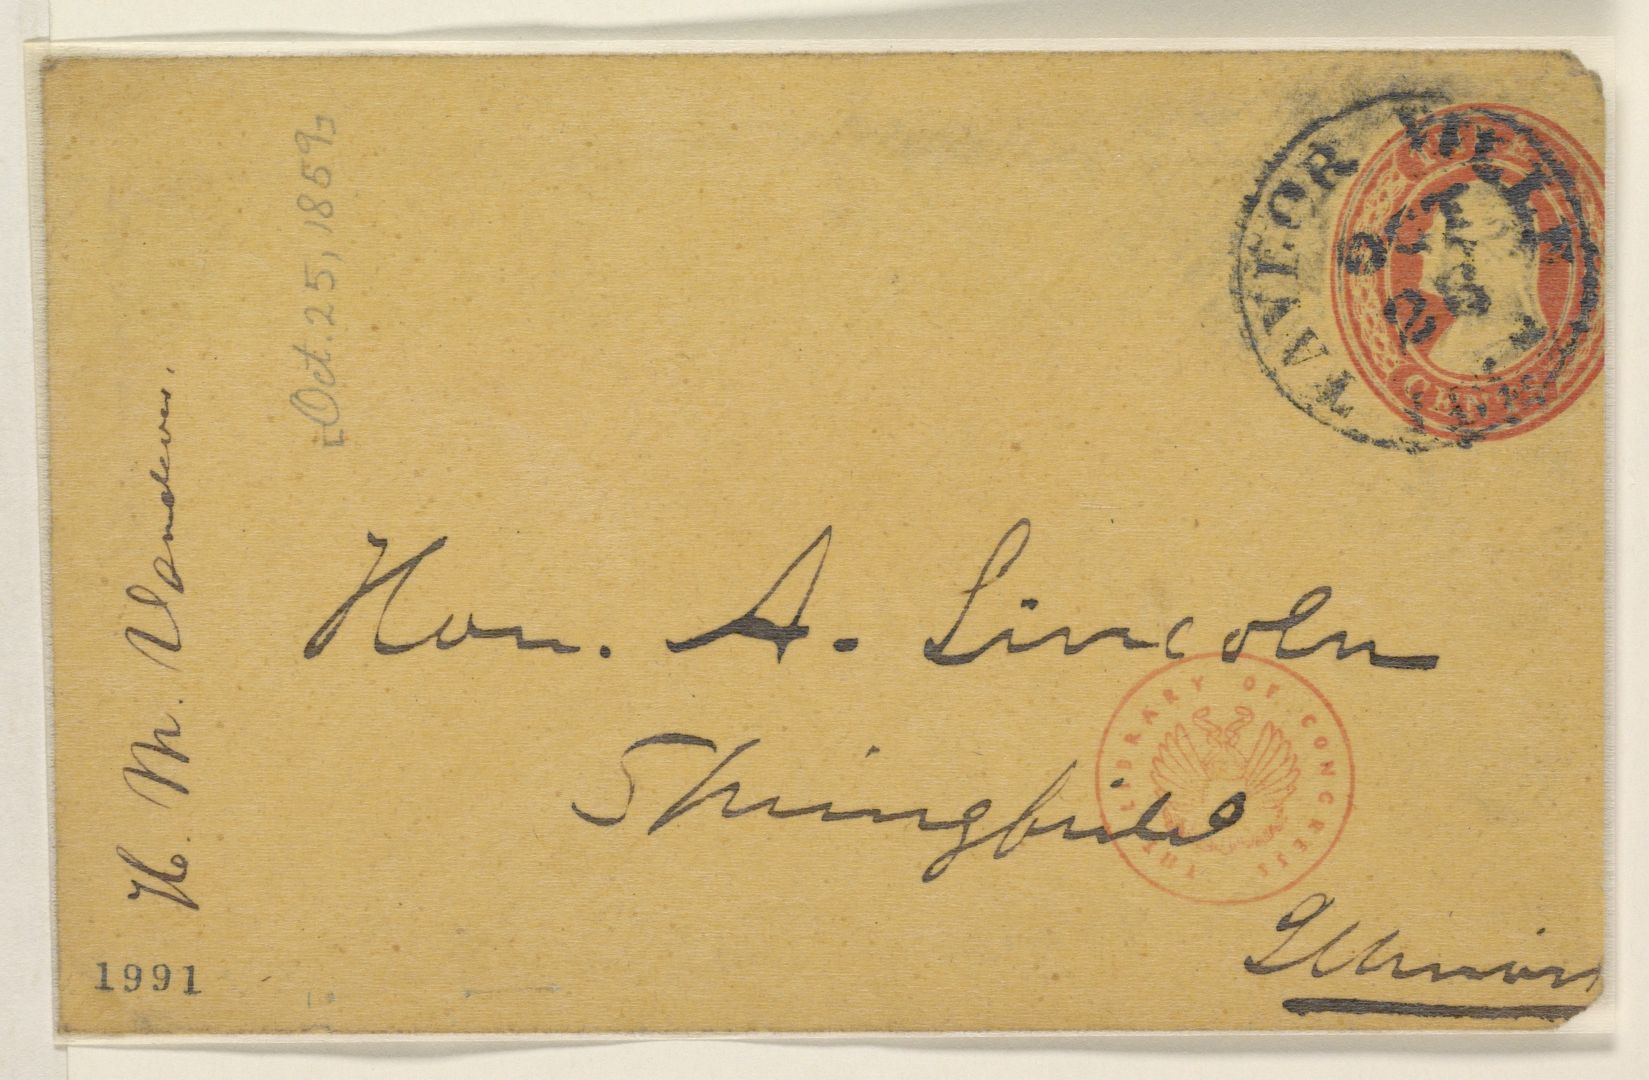 TAYLORVILLE
OCT
25
CENTS
[Oct. 25, 1859]
H. M. Vandever.
Hon. A. Lincoln
Springfield
Illinois
THE LIBRARY OF CONGRESS
1991